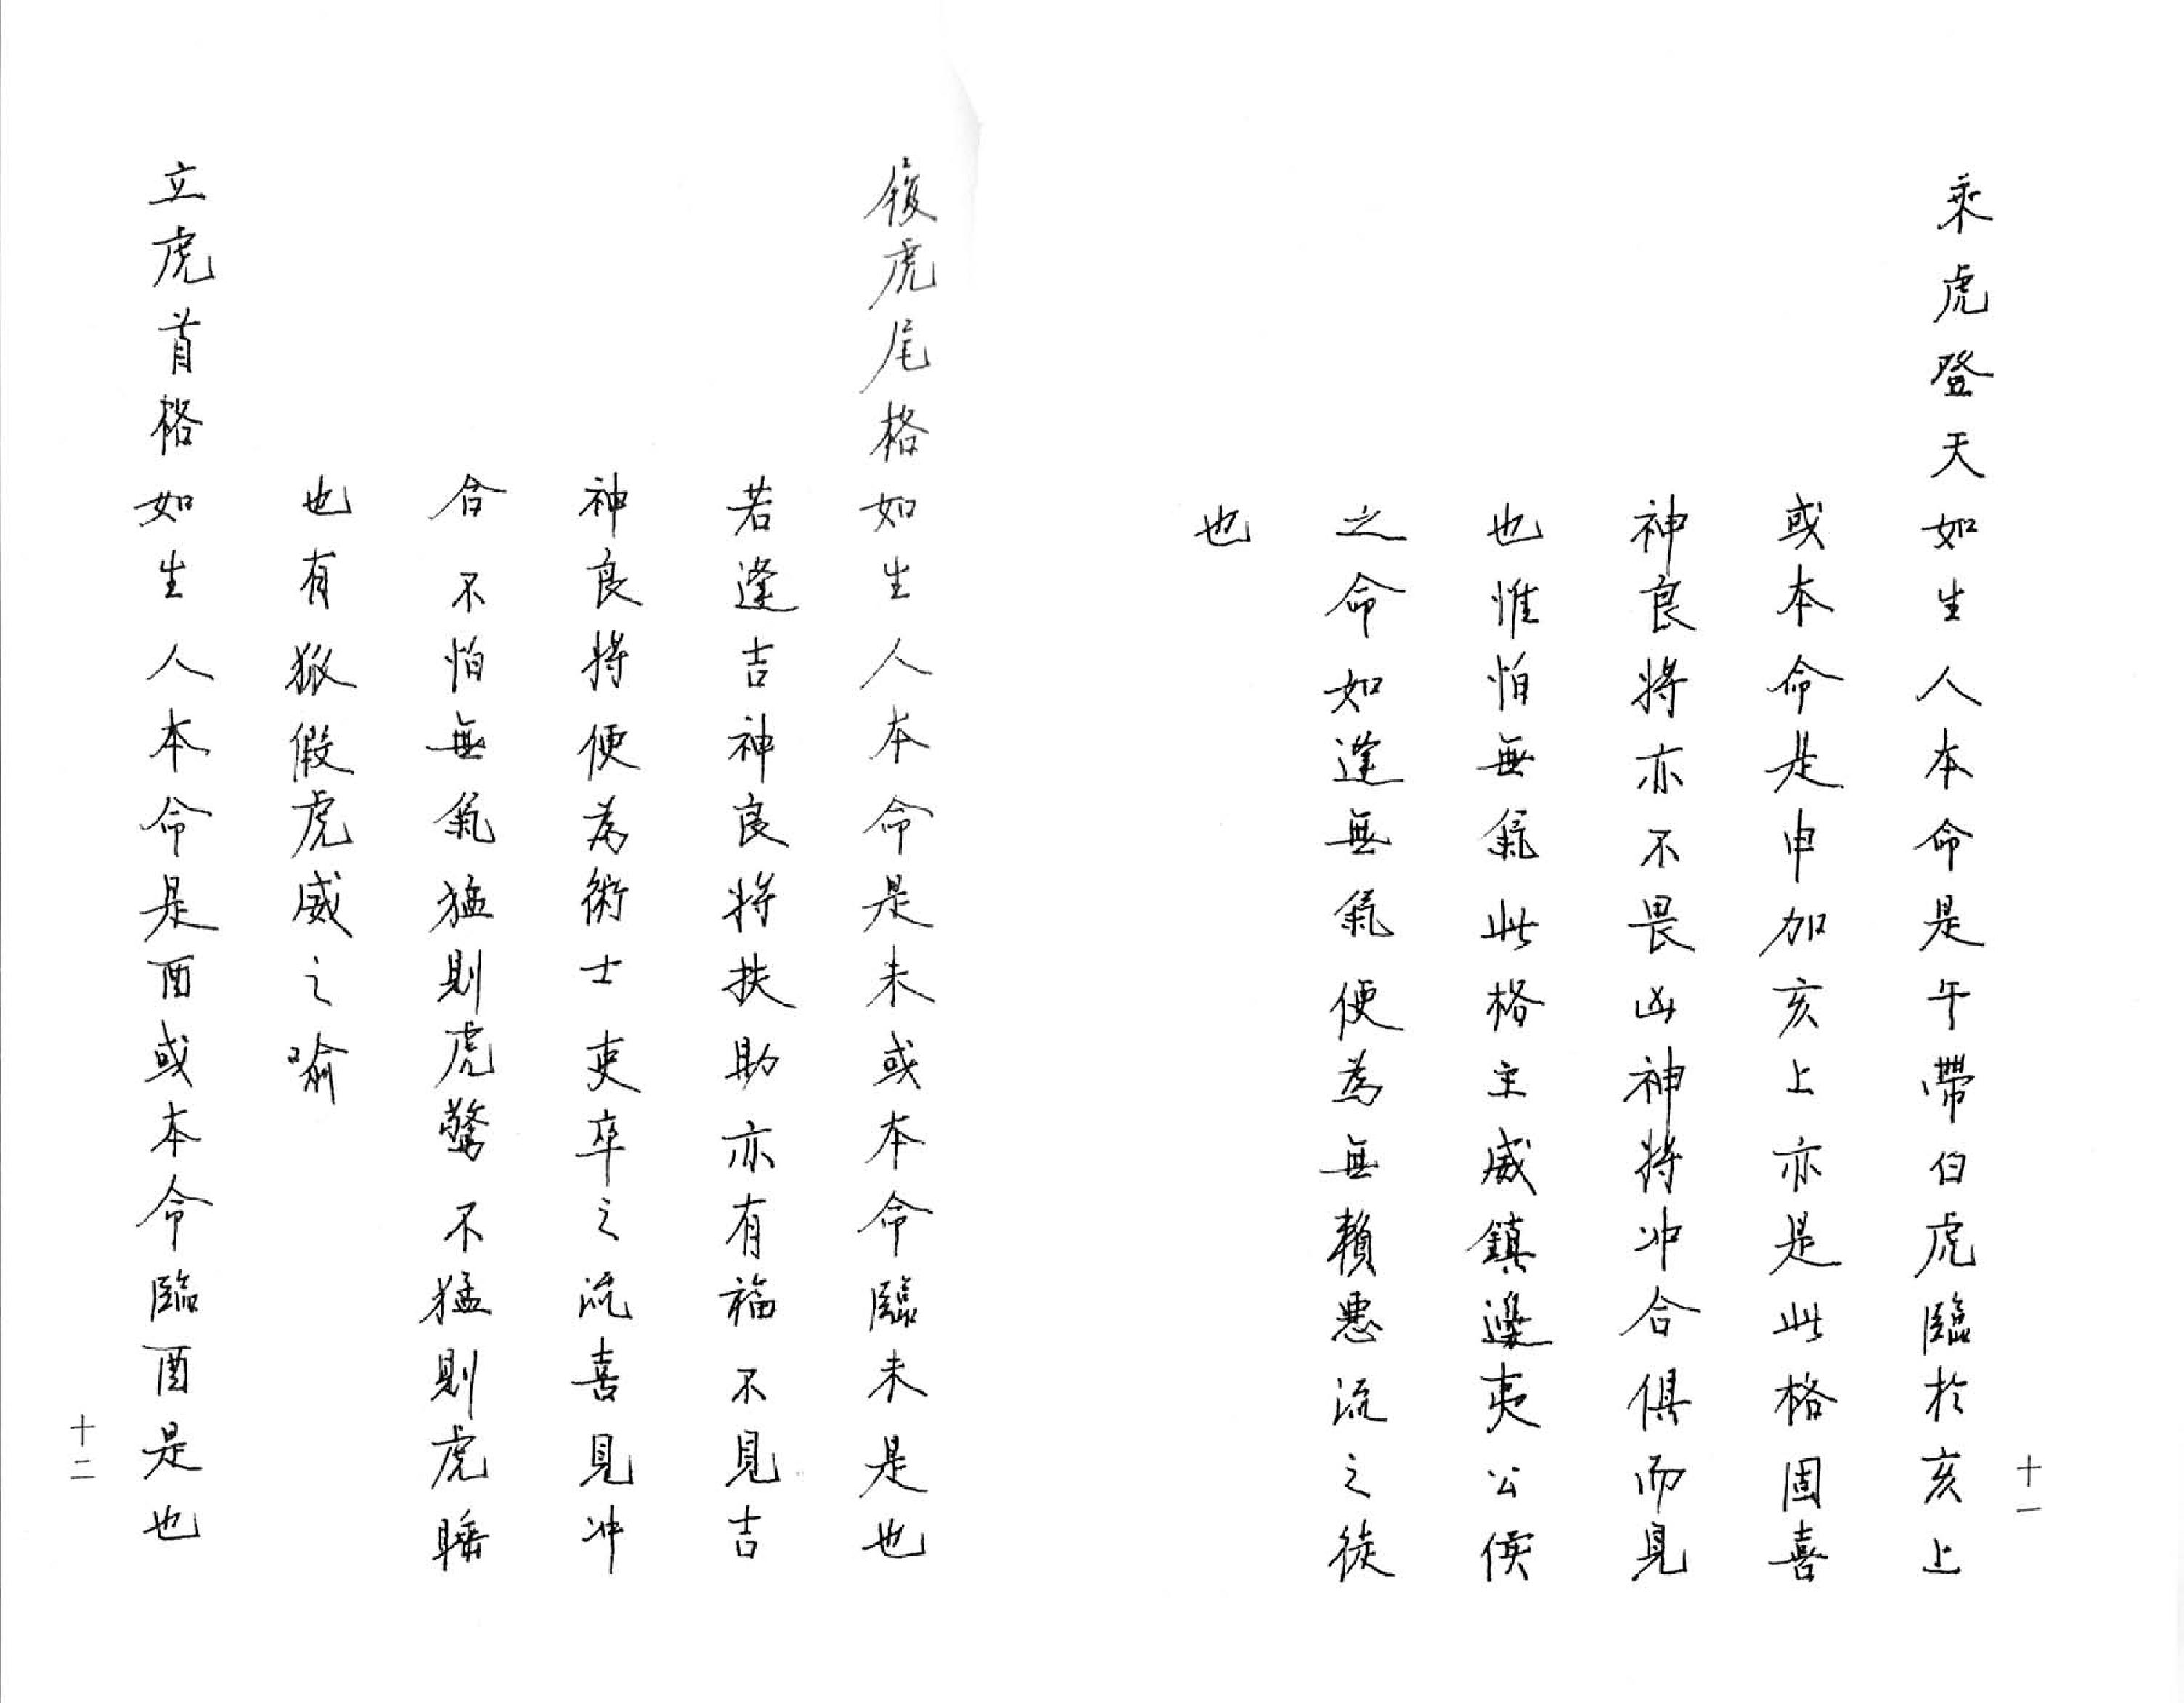 十一
乘虎登天如生人本命是午帶白虎臨於亥上
或本命是申加亥上亦是此格固喜
神良將亦不畏凶神將冲合俱而見
也惟怕無氣此格主威鎮邊夷公侯
之命如逢無氣便為無賴惡流之徒
也
履虎尾格如生人本命是未或本命臨未是也
若逢吉神良將扶助亦有福不見吉
神良將便為術士吏卒之流喜見冲
合不怕無氣猛則虎驚不猛則虎睡
也有狐假虎威之喻
立虎首格如生人本命是酉或本命臨酉是也
十二